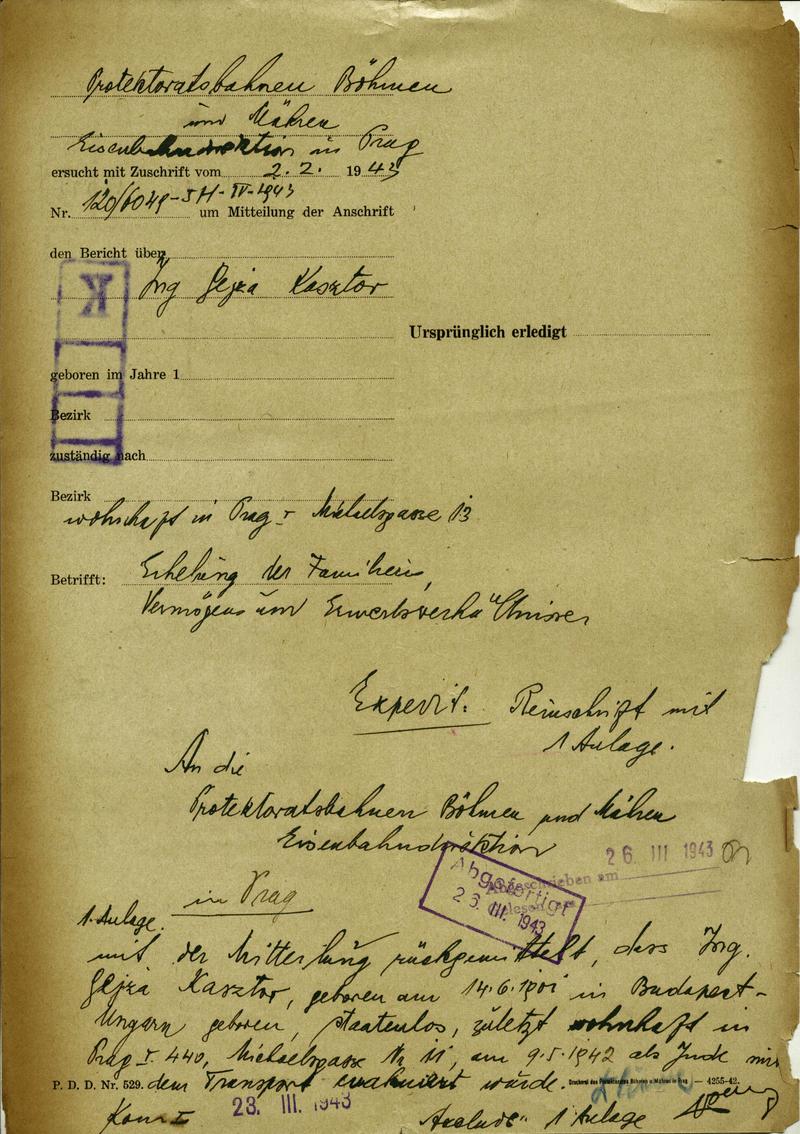 Protektoratsbahnen Böhmen
und Mähren
Eisenbahndirektion in Prag
ersucht mit Zuschrift vom 2. 2. 1943
Nr. 120/6049-5H-IV-1943 um Mitteilung der Anschrift
den Bericht über
K
Ing Gejza Kasztor
Ursprünglich erledigt
geboren im Jahre 1
Bezirk
zuständig nach
Bezirk
wohnhaft in Prag I Michaelsgasse 13
Betrifft: Erhebung der Familien,
Vermögens und Erwerbsverhältnisse
Expedit: Reinschrift mit
1 Anlage.
An die
Protektoratsbahnen Böhmen und Mähren
Eisenbahndirektion
26 III 1943
Abgeschrieben am
Abgefertigt
23. III. 1943
in Prag
1 Anlage.
mit der Mitteilung rückgemittelt, dass Ing.
Gejza Kasztor, geboren am 14.6.1901 in Budapest-
Ungarn geboren, staatenlos, zuletzt wohnhaft in
Prag I. 440, Michaelsgasse Nr 11, am 9.5.1942 als Jude mit
P. D. D. Nr. 529. dem Transport evakuiert wurde. Druckerei des Protektorates Böhmen u. Mähren in Prag — 4255-42.
23. III. 1943
1 Anlage